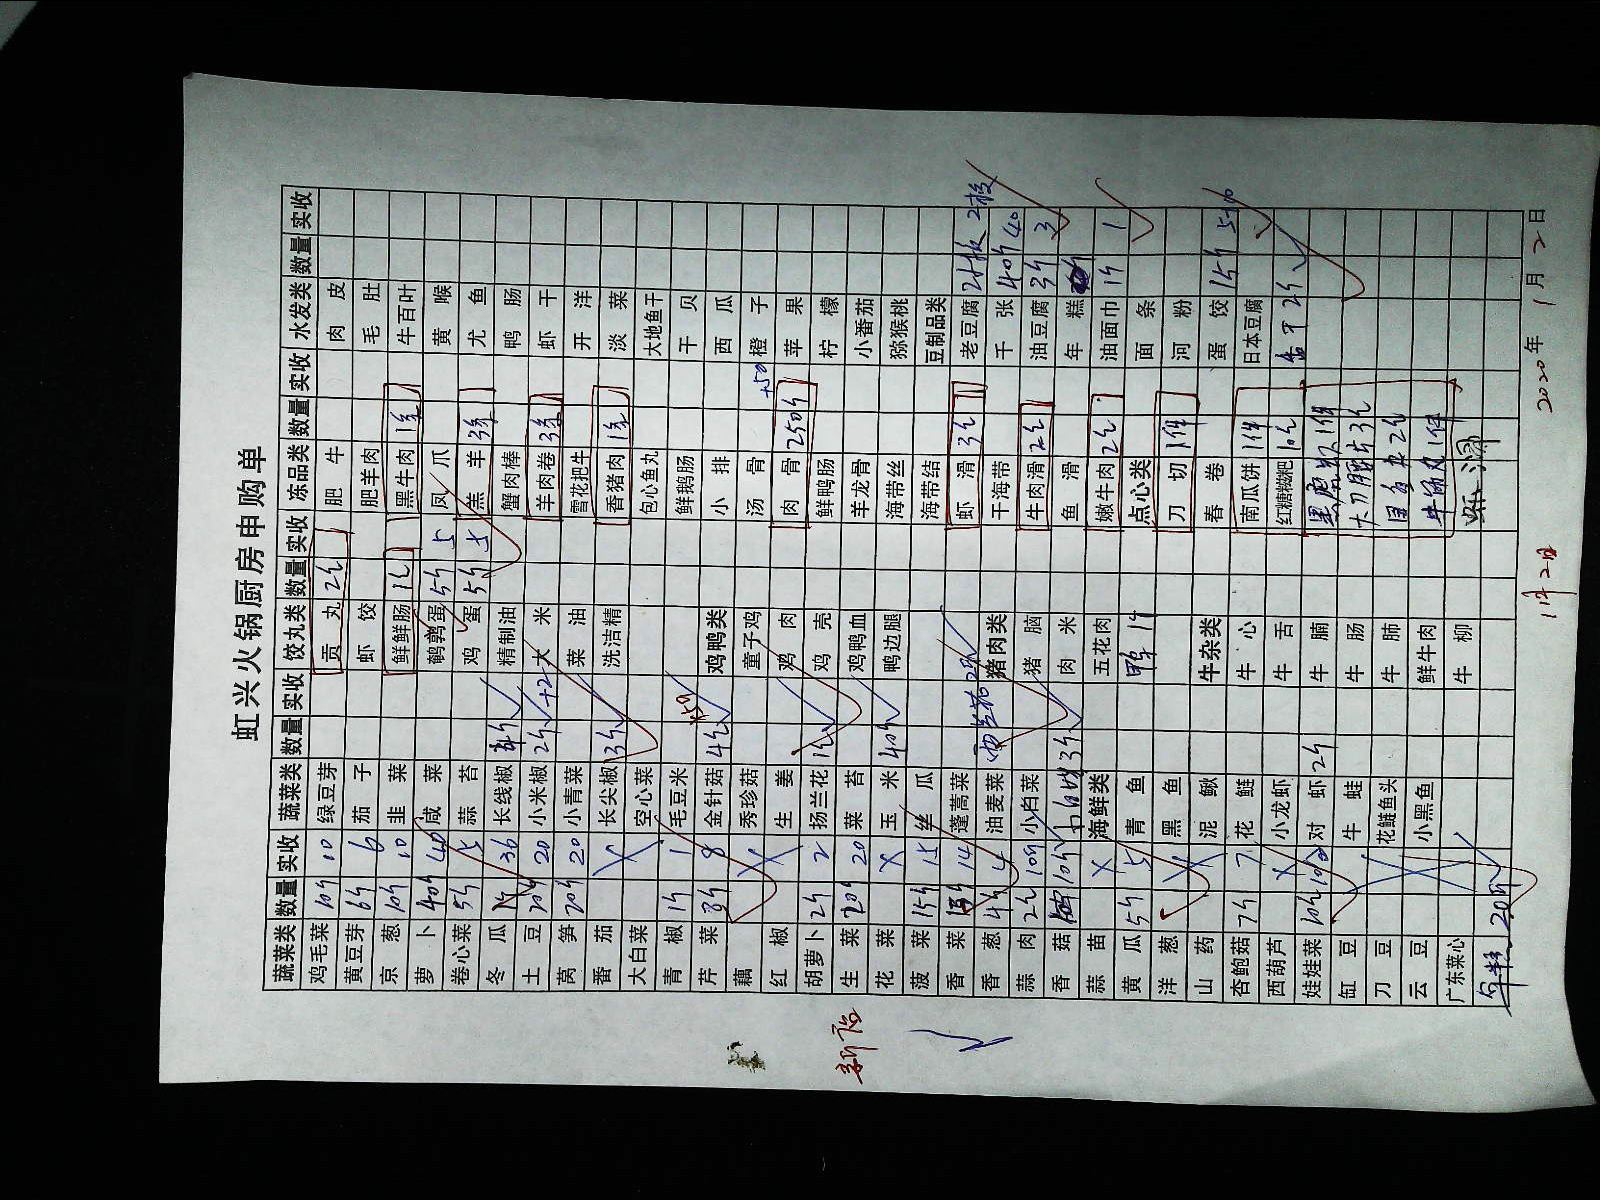 虹兴火锅厨房申购单
蔬菜类 数量 实收 蔬菜类 数量 实收 饺丸类 数量 实收 冻品类 数量 实收 水发类 数量 实收
鸡毛菜 10斤 10 绿豆芽 贡丸 2包 肥牛 肉皮
黄豆芽 6斤 6 茄子 虾饺 肥羊肉 毛肚
京葱 10斤 10 韭菜 鲜鲜肠 1包 黑牛肉 1条 牛百叶
萝卜 40斤 40 咸菜 鹌鹑蛋 5斤 5 凤爪 黄喉
卷心菜 5斤 5 蒜苔 鸡蛋 5斤 5 羔羊 3条 尤鱼
冬瓜 36 长线椒 4斤 精制油 蟹肉棒 鸭肠
土豆 20斤 20 小米椒 2斤 +2 大米 羊肉卷 3条 虾干
莴笋 20斤 20 小青菜 菜油 雪花把牛 开洋
番茄 长尖椒 3斤 洗洁精 香猪肉 1条 淡菜
大白菜 空心菜 包心鱼丸 大地鱼干
青椒 1斤 1 毛豆米 鲜鹅肠 干贝
芹菜 8斤 8 金针菇 4包 鸡鸭类 小排 西瓜
藕 秀珍菇 童子鸡 汤骨 橙子
红椒 生姜 鸡肉 肉骨 250斤 +50 苹果
胡萝卜 2斤 2 扬兰花 1包 鸡壳 鲜鸭肠 柠檬
生菜 20斤 20 菜苔 鸡鸭血 羊龙骨 小番茄
花菜 玉米 40斤 鸭边腿 海带丝 猕猴桃
菠菜 15斤 15 丝瓜 海带结 豆制品类
香菜 14 蓬蒿菜 虾滑 3包 老豆腐 2板 2板
香葱 4斤 4 油麦菜 西兰花 猪肉类 干海带 千张 40斤 40
蒜肉 2斤 小白菜 猪脑 牛肉滑 2包 油豆腐 3斤 3
香菇 10斤 3斤 肉米 鱼滑 年糕
蒜苗 海鲜类 五花肉 嫩牛肉 2包 油面巾 1斤 1
黄瓜 5斤 5 青鱼 点心类 面条
洋葱 黑鱼 刀切 1件 河粉
山药 泥鳅 牛杂类 春卷 蛋饺 15斤
杏鲍菇 7斤 7 花鲢 牛心 南瓜饼 1件 日本豆腐
西葫芦 小龙虾 牛舌 红糖糍粑 10包 2斤
娃娃菜 对虾 2斤 牛腩 1件
缸豆 牛蛙 牛肠 3包
刀豆 花鲢鱼头 牛肺 2包
云豆 小黑鱼 鲜牛肉 1件
广东菜心 牛柳
20斤
1月2日
2020年1月2日